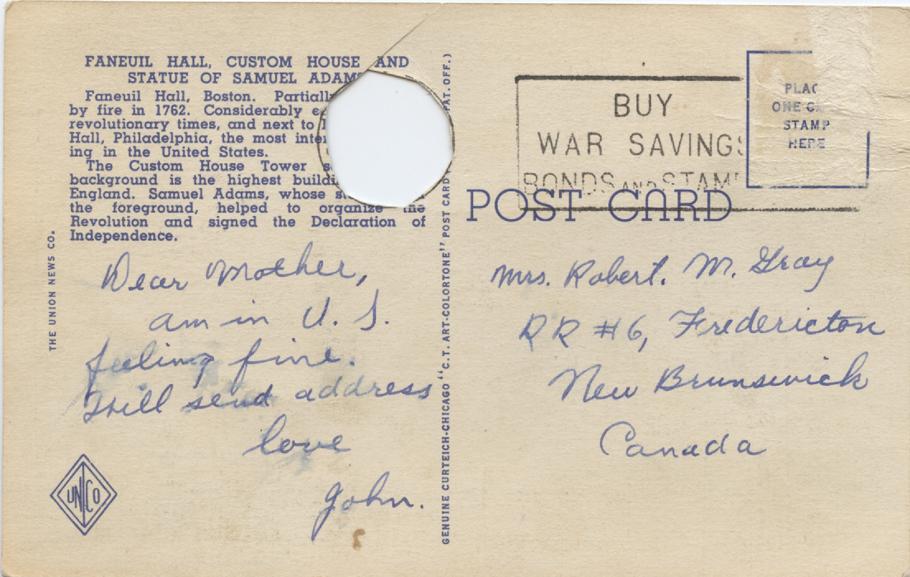 FANEUIL HALL, CUSTOM HOUSE AND
STATUE OF SAMUEL ADAMS
Faneuil Hall, Boston. Partially
by fire in 1762. Considerably
revolutionary times, and next to
Hall, Philadelphia, the most
ing in the United States.
The Custom House Tower
background is the highest
England. Samuel Adams, whose
the foreground, helped to organize the
Revolution and signed the Declaration of
Independence.
Dear Mother,
am in U. S.
feeling fine.
Will send address
love
John.
THE UNION NEWS CO.
UNCO
GENUINE CURTEICH-CHICAGO "C.T. ART-COLORTONE" POST CARD PAT. OFF.)
BUY
WAR SAVINGS
BONDS AND STAMP
PLAC
ONE C
STAMP
HERE
POST CARD
Mrs. Robert. M. Gray
RR #6, Fredericton
New Brunswick
Canada